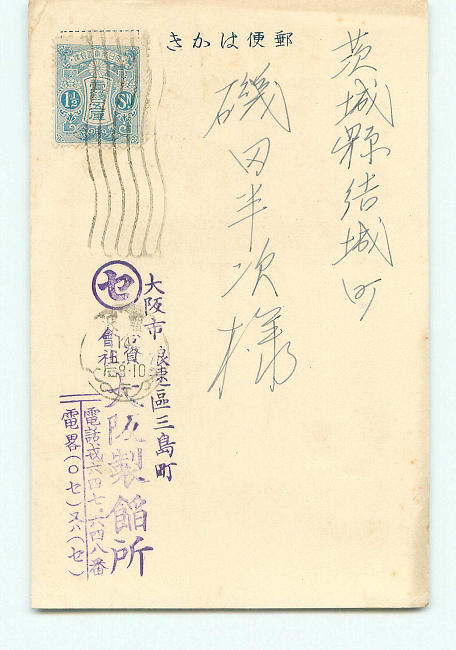 郵便はかき
茨城縣結城町
磯田半次様
1½
Sn
セ
大阪市浪速區三島町
合資
會社
大阪製餡所
電話戎六四七・六四八番
電畧(〇セ)又ハ(セ)
8-10